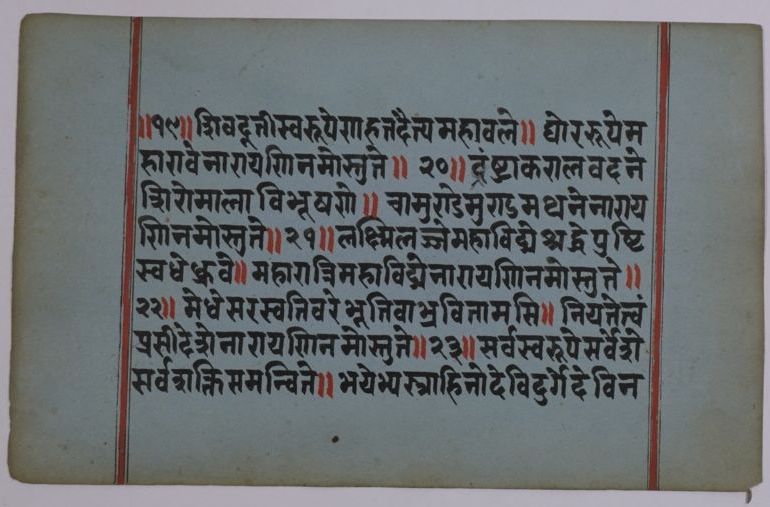 ॥१९॥ शिवदूतीस्वरूपेणहतदैत्यमहावले॥ घोररूपेम
हारावेनारायणिनमोस्तुते॥ २०॥ दंष्ट्राकरालवदने
शिरोमालाविभूषणे॥ चामुण्डेमुण्डमथनेनाराय
णिनमोस्तुते॥२१॥ लक्ष्मिलज्जेमहाविद्येश्रद्धेपुष्टि
स्वधेध्रुवे॥ महारात्रिमहाविद्येनारायणिनमोस्तुते॥
२२॥ मेधेसरस्वतिवरेभूतिवाभ्रवितामसि॥ नियतेत्वं
प्रसीदेशेनारायणिनमोस्तुते॥२३॥ सर्वस्वरूपेसर्वेशे
सर्वशक्तिसमन्विते॥ भयेभ्यस्त्राहिनोदेविदुर्गेदेविन